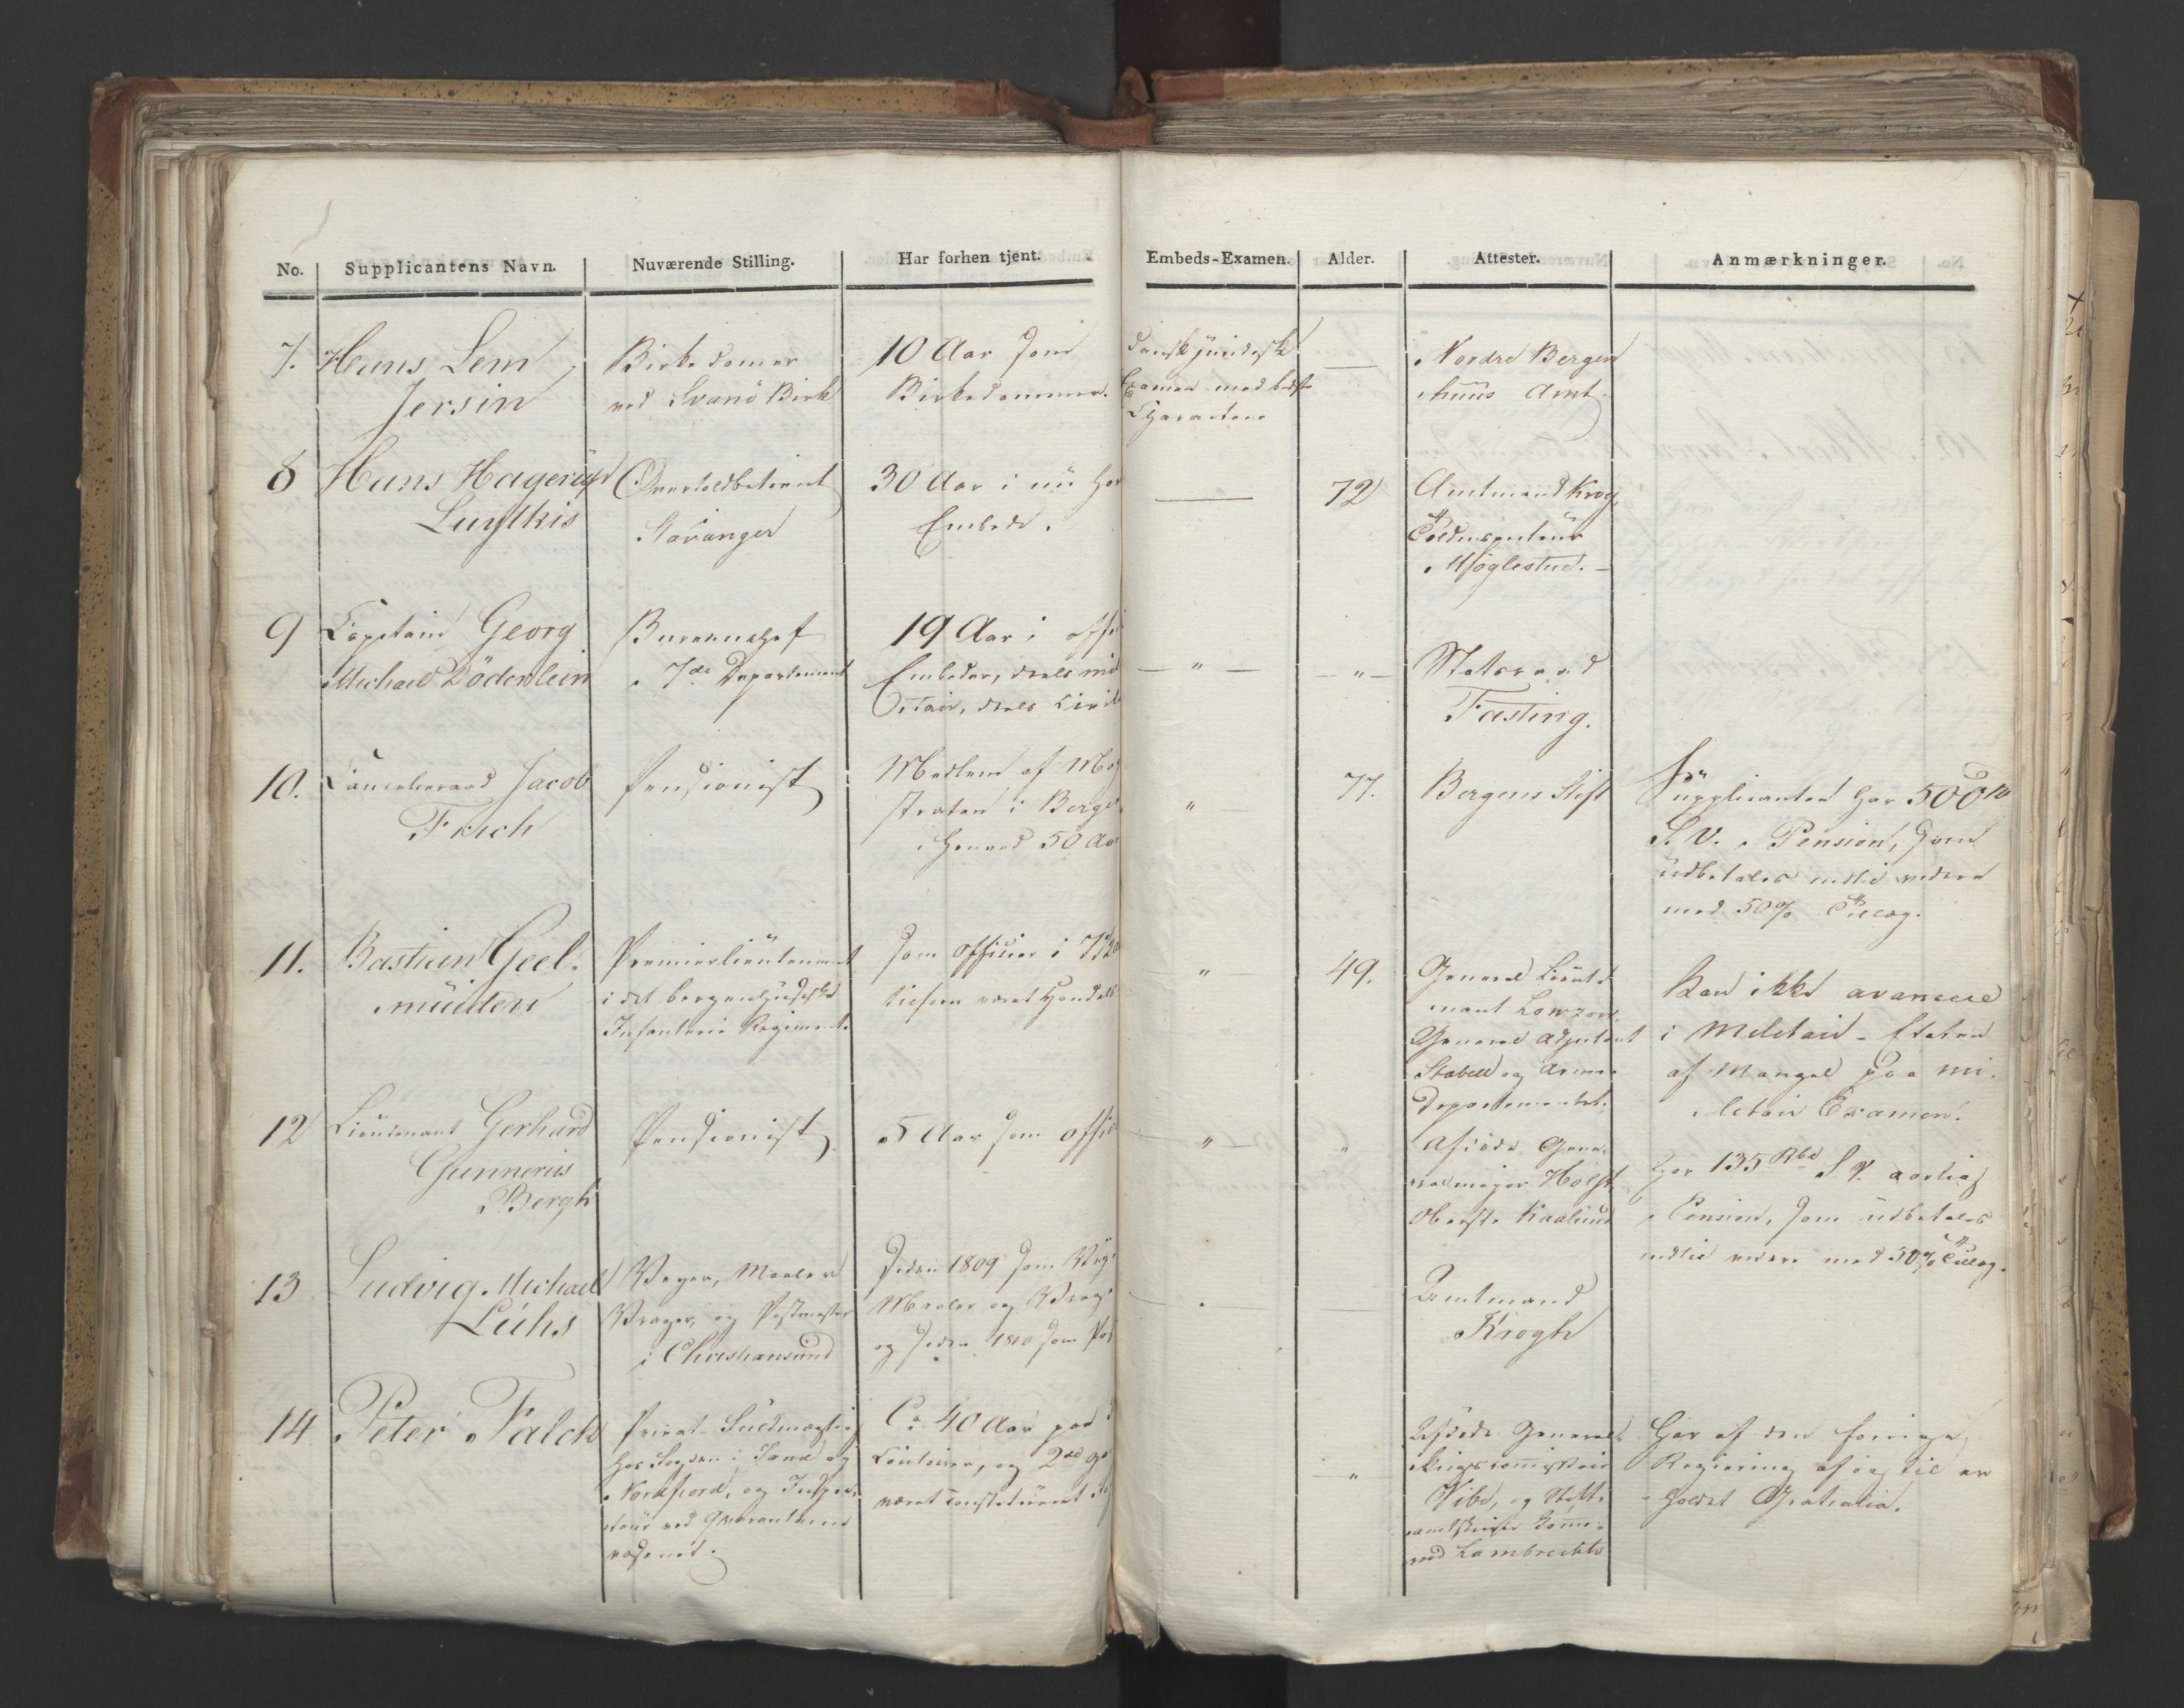 No. Supplicantens Navn. Nuværende Stilling. Har forhen tjent. Embeds-Examen. Alder. Attester. Anmærkninger.
7. Hans Lem
Jersin
Birkedomer
ved Svanö Birk
10 Aar som
Birkedommer.
dansk juridisk
Examen med bedste
Characteer
—
Nordre Bergen
huus Amt.
8 Hans Hagerup
Luytkis
Overtoldbetient
Stavanger
30 Aar i nu hav
Embede.
—
72
Amtmand Krog,
Toldinspecteur
Möglestue. —
9 Capitain Georg
Michael Döderlein
Bureauchef
i 7de Departement
19 Aar i off
Embeder, deels mi
litair, deels Civile
— " —
— " —
Statsraad
Fasting.
10. Cancelieraad Jacob
Frich
Pensionist
Medlem af Mag
straten i Berge
i henved 50 Aar
"
77.
Bergens Stift
Supplicanten har 500
S. V. i Pension, som
udbetales indtil videre
med 50% Tillæg.
11. Bastian Geel-
muiden
Premierlieutenant
i det bergenhuusiske
Infanterie Regiment.
som Officier i
tilforn været Handels
"
49.
General Lieute
nant Lowzow.
General Adjutant
Stabell og Armee
Departementet.
Kan ikke avancere
i Militair-Etaten
af Mangel paa mi-
litair Examen.
12 Lieutenant Gerhard
Gunnerus
Bergh
Pensionist
5 Aar som Offic
"
"
Afdöde Gene-
ralmajor Holst
Oberste Kaalund
Har 135 Rbd S. V. aarlig
i Pension, som udbetales
indtil videre med 50% Tillæg.
13 Ludvig Michael
Lühs
Veyer, Maaler
Vrager, og Postmester
i Christiansund
siden 1809 som Vey
Maaler og Vrag
og siden 1810 som Pos
Amtmand
Krogh
14 Peter Falck
Privat-Fuldmægtig
hos Fogden i Sand og
Nordfiord, og Inspec-
teur ved Qvarantaine
væsenet.
Ca 40 Aar paa
Contoirer, og 2de g
været constitueret
— " —
Afdöde General
krigscommissair
Vibe, og Stift-
amtskriver Kamme-
raad Lambrechts
Har af den forrige
Regiering af og til er-
holdet Gratialia.